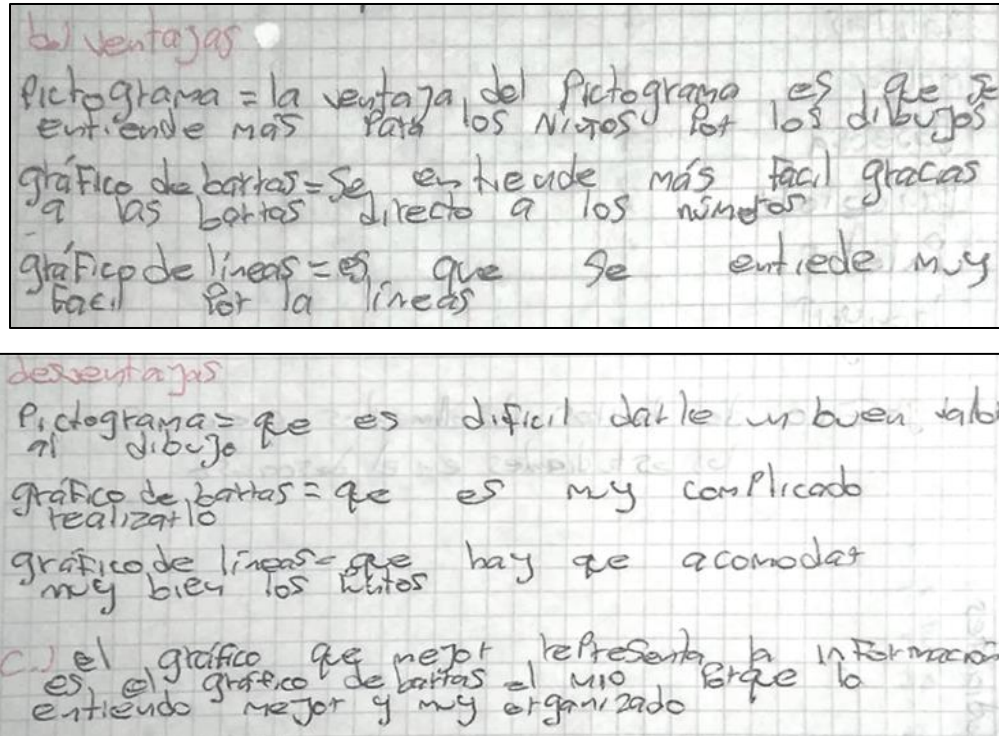 b.) ventajas
Pictograma = la ventaja del Pictograma es que se
entiende más Para los Niños Por los dibujos
gráfico de barras = Se entiende más facil gracias
a las barras directo a los números
gráfico de líneas = es que se entiede muy
facil Por la líneas
desventajas
Pictograma = que es dificil darle un buen valor
al dibujo
gráfico de barras = que es muy complicado
realizarlo
gráfico de líneas = que hay que acomodar
muy bien los
c.) el gráfico que mejor rePresenta la informacion
es el gráfico de barras el mio Porque lo
entiendo mejor y muy organizado